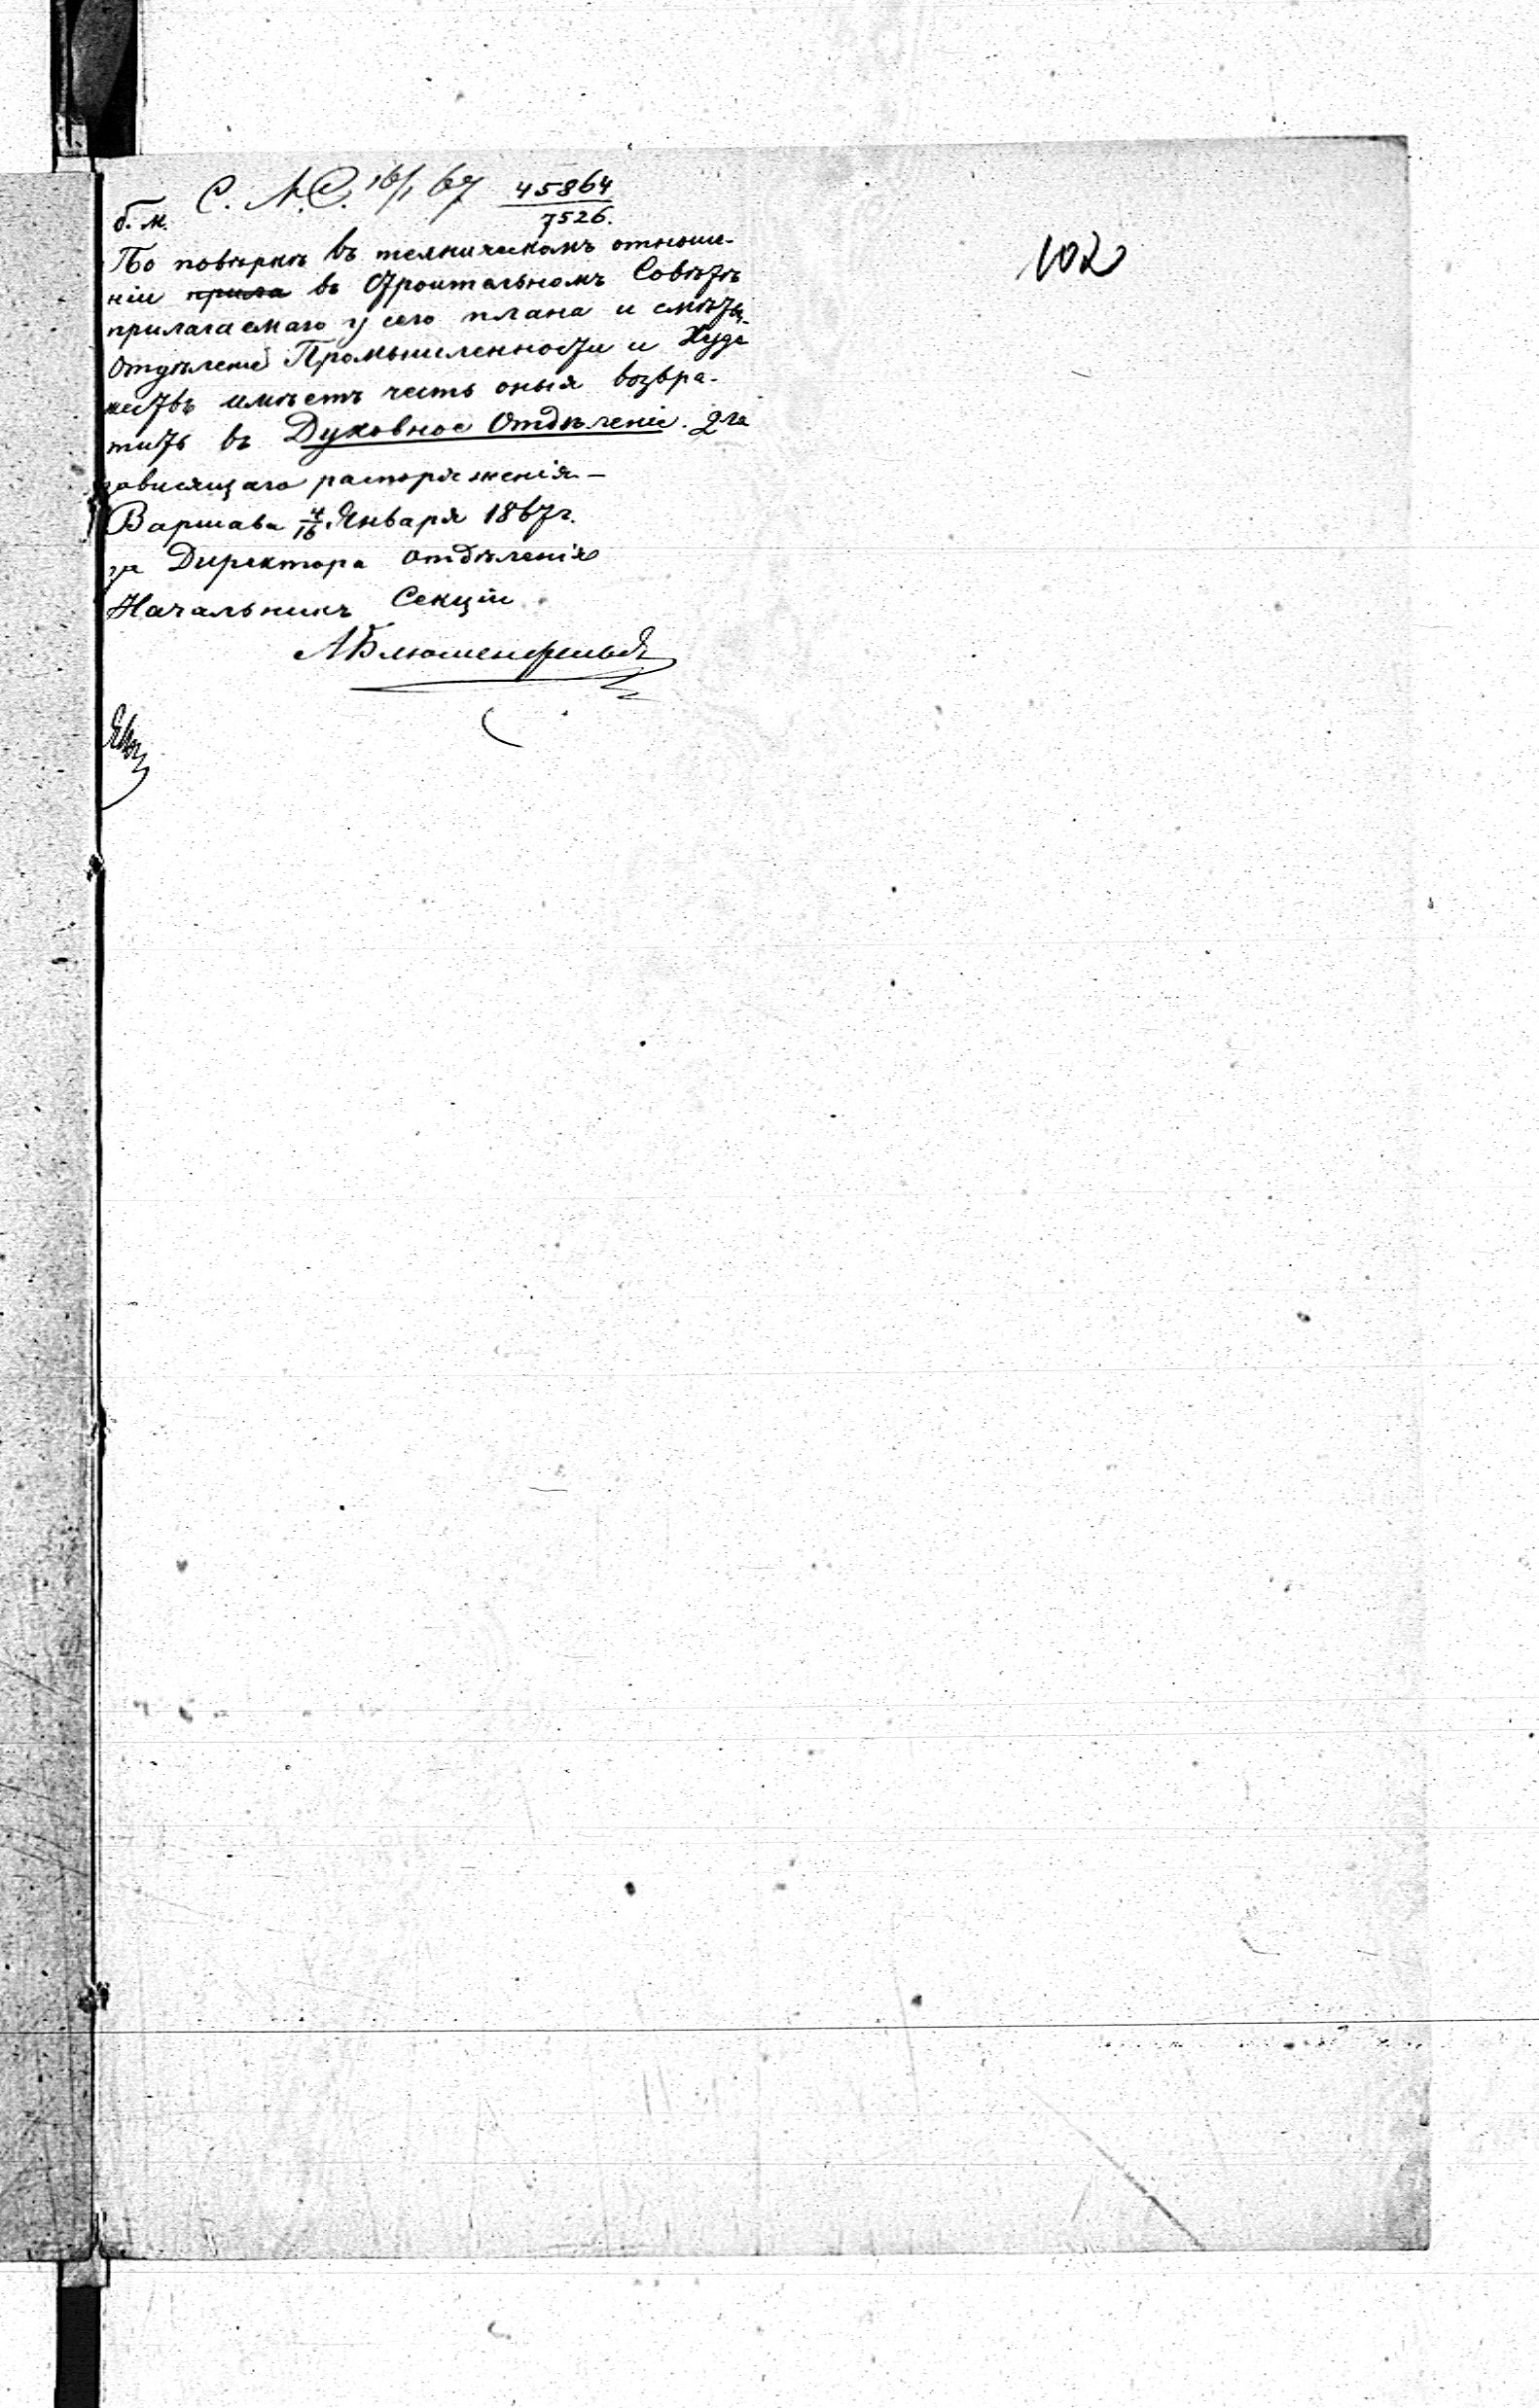 С. 16/1 67 45864
7526.
б. м.
102
По повѣркѣ въ техническомъ отноше-
ніи прила въ Строительномъ Совѣтѣ
прилагаемаго у сего плана и смѣты,
Отдѣленіе Промышленности и Худо
жествъ имѣетъ честь оныя возвра-
тить въ Духовное Отдѣленіе для
зависящаго распоряженія —
Варшава 4/16 Января 1867 г.
за Директора Отдѣленія
Начальникъ Секціи